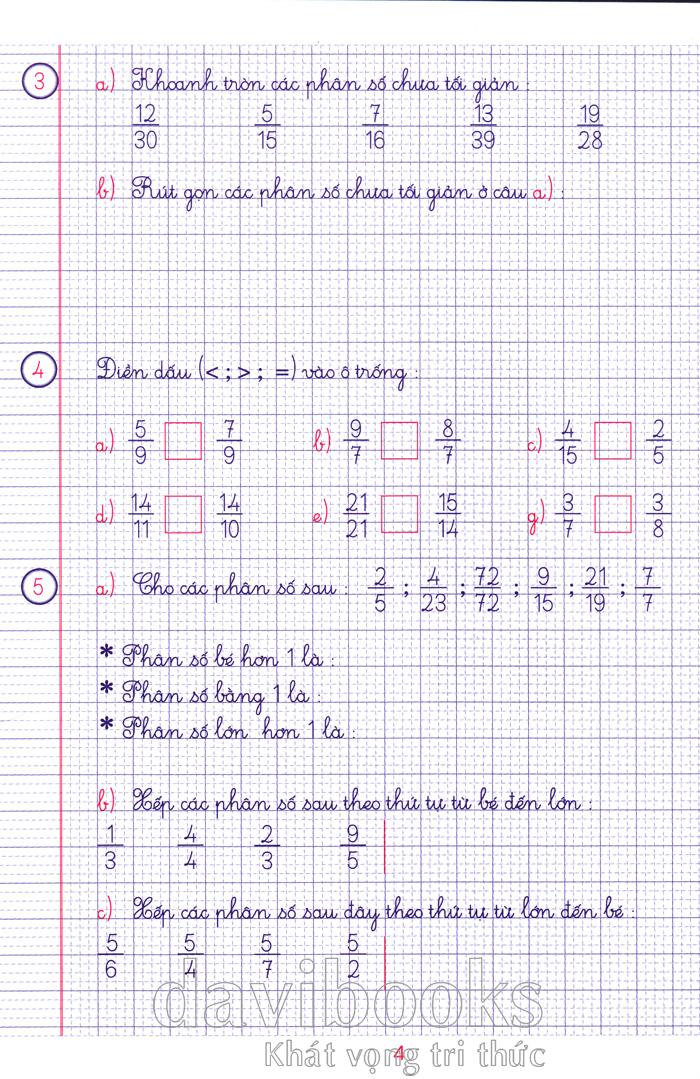 3 a) Khoanh tròn các phân số chưa tối giản :
12/30 5/15 7/16 13/39 19/28
b) Rút gọn các phân số chưa tối giản ở câu a) :
4 Điền dấu (< ; > ; =) vào ô trống :
a) 5/9 7/9 b) 9/7 8/7 c) 4/15 2/5
d) 14/11 14/10 e) 21/21 15/14 g) 3/7 3/8
5 a) Cho các phân số sau : 2/5 ; 4/23 ; 72/72 ; 9/15 ; 21/19 ; 7/7
* Phân số bé hơn 1 là :
* Phân số bằng 1 là :
* Phân số lớn hơn 1 là :
b) Xếp các phân số sau theo thứ tự từ bé đến lớn :
1/3 4/4 2/3 9/5
c) Xếp các phân số sau đây theo thứ tự từ lớn đến bé :
5/6 5/4 5/7 5/2
davibooks
Khát vọng tri thức
4